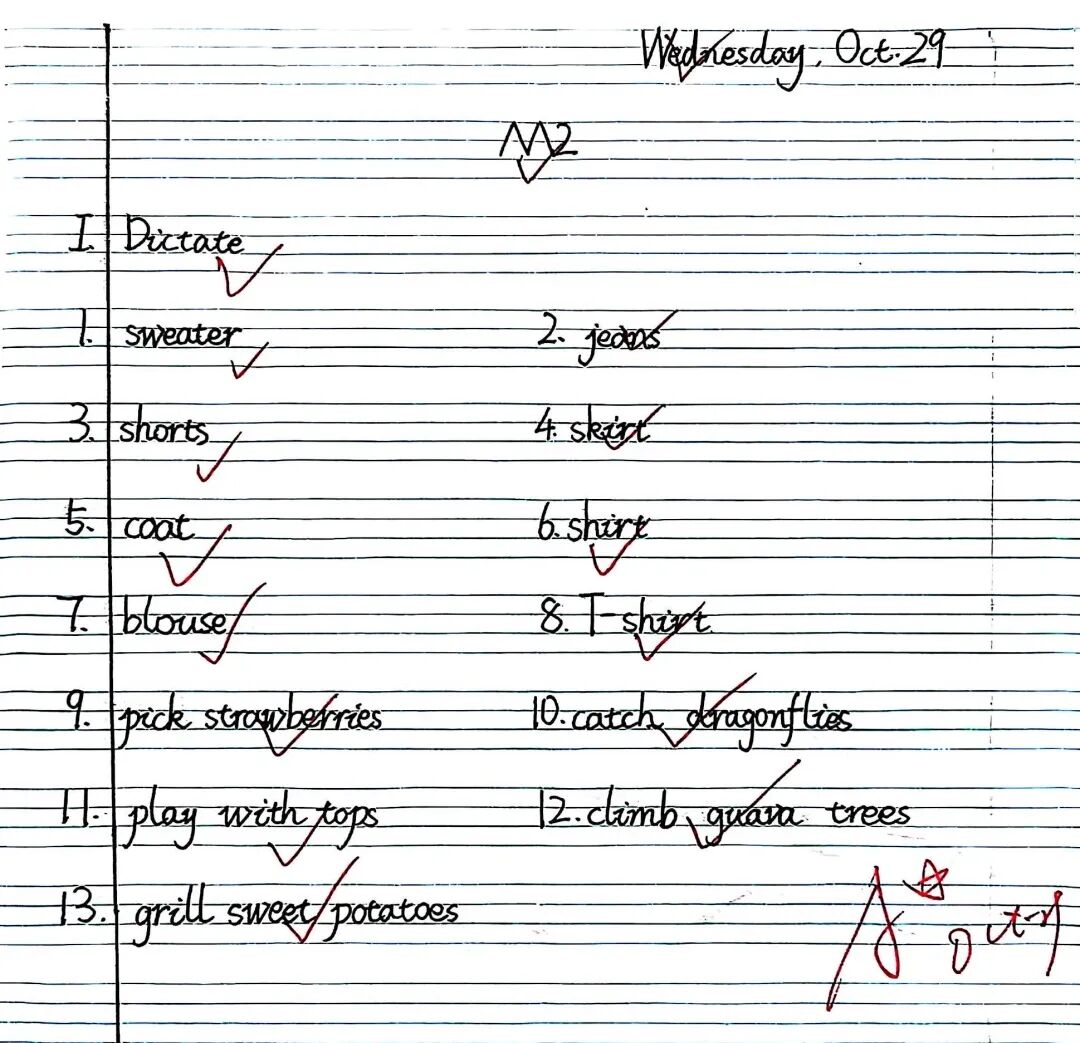 Wednesday, Oct. 29
M2
I. Dictate
1. sweater 2. jeans
3. shorts 4. skirt
5. coat 6. shirt
7. blouse 8. T-shirt
9. pick strawberries 10. catch dragonflies
11. play with tops 12. climb guava trees
13. grill sweet potatoes
A☆